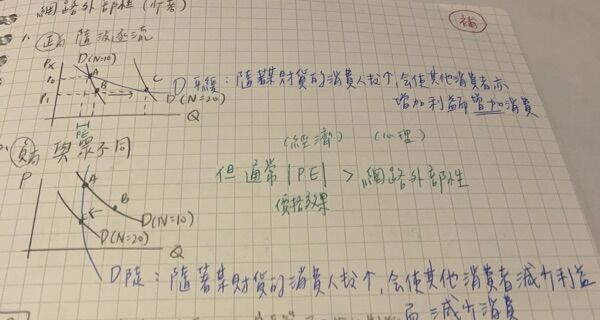 網路外部性(介著)
補
1. 正向 隨波逐流
Px
P0
P1
D(N=10)
A
B
C
D(N=20)
Q
PE
D平緩：隨著某財貨的消費人數↑,會使其他消費者亦
增加利益而增加消費
2. 負向 與眾不同
(經濟) (心理)
但通常|PE| > 網路外部性
價格效果
P
A
B
C
D(N=10)
D(N=20)
Q
D陡：隨著某財貨的消費人數↑,會使其他消費者減少利益
而減少消費